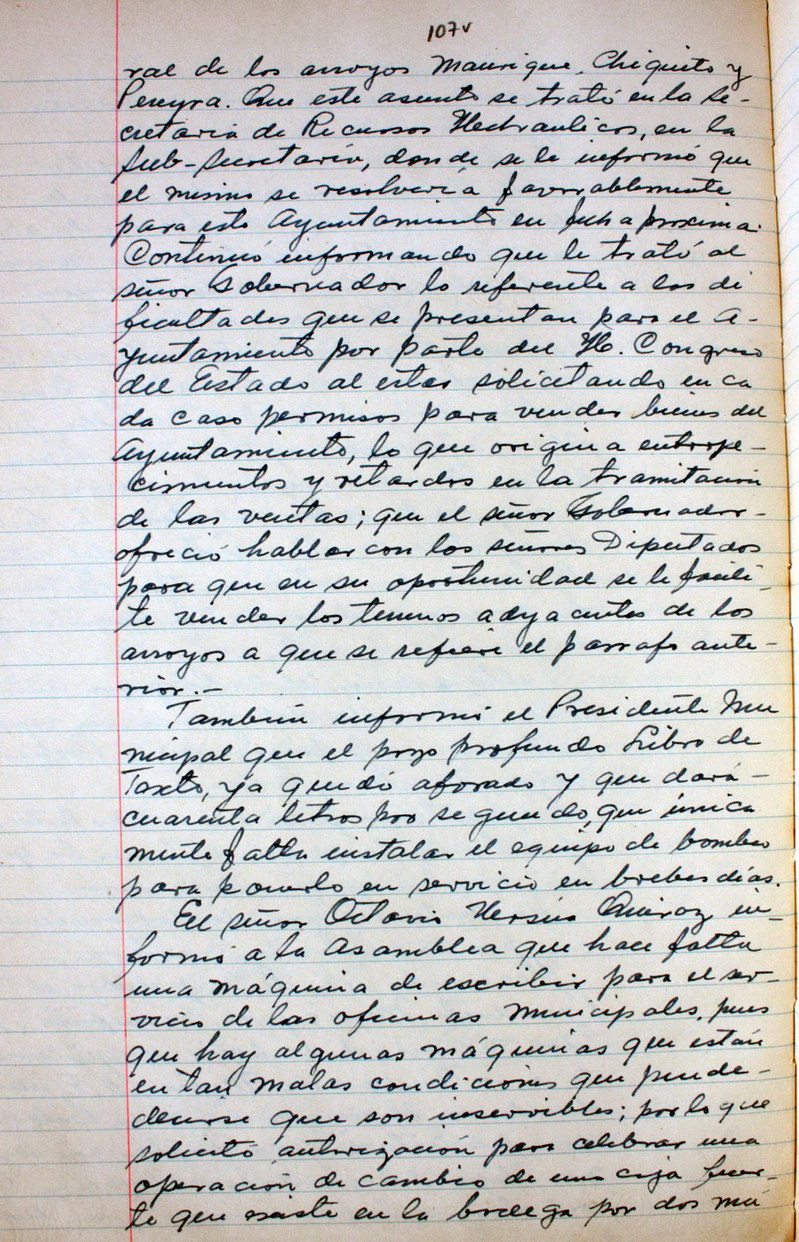 107v
ral de los arroyos Manrique, Chiquito y
Pereyra. Que este asunto se trató en la Se-
cretaria de Recursos Hedraulicos, en la
Sub-Secretaría, donde se le informó que
el mismo se resolvería favorablemente
para este Ayuntamiento en fecha proxima.
Continuó informando que le trató al
señor Gobernador lo referente a las di
ficultades que se presentan para el A-
yuntamiento por parte del H. Congreso
del Estado al estar solicitando en ca
da caso permisos para vender bienes del
Ayuntamiento, lo que origina entorpe-
cimientos y retardos en la tramitación
de las ventas; que el señor Gobernador-
ofreció hablar con los señores Diputados
para que en su oportunidad se le facili-
te vender los terrenos adyacentes de los
arroyos a que se refiere el parrafo ante-
rior.-
También informó el Presidente Mu
nicipal que el pozo profundo Libro de
Texto, ya quedó aforado y que dará-
cuarenta litros por segundo, que unica
mente falta instalar el equipo de bombeo
para ponerlo en servicio en brebes días.
El señor Octavio Quiroz in-
formó a la Asamblea que hace falta
una máquina de escribir para el ser-
vicio de las oficinas municipales, pues
que hay algunas máquinas que están
en tan malas condiciones que puede-
decirse que son inservibles; por lo que
solicitó autorización para celebrar una
operación de cambio de una caja fuer-
te que existe en la bodega por dos má